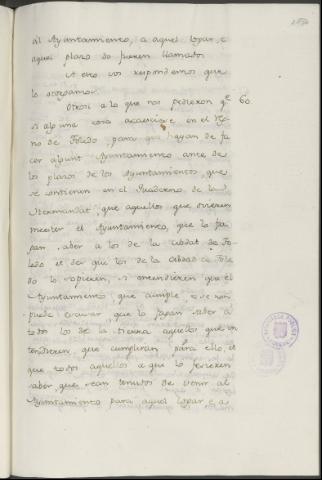 al Ayuntamiento, a aquel logar, e
aquel plazo do fueren llamados.
A esto vos respondemos que
lo otorgamos.
Otrosi a lo que nos pedieron qe 60
si alguna cosa acaesciere en el Reg
no de Toledo, para que hayan de fa
cer algunt Ayuntamiento ante de
los plazos de los Ayuntamientos, que
se contienen en el Quaderno de la
Hermandat, que aquellos que ovieren
menester el Ayuntamiento, que lo fa
gan saber a los de la cibdat de To
ledo et des que los de la cibdad de Tole
do lo sopieren, si entendieren que el
Ayuntamiento que cumple, e se non
puede escusar que lo fagan saber a
todos los de la tierra aquellos que en
tendieren, que cumpliran para ello, et
que todos aquellos a que lo ficieren
saber que sean tenudos de venir al
Ayuntamiento para aquel logar e a